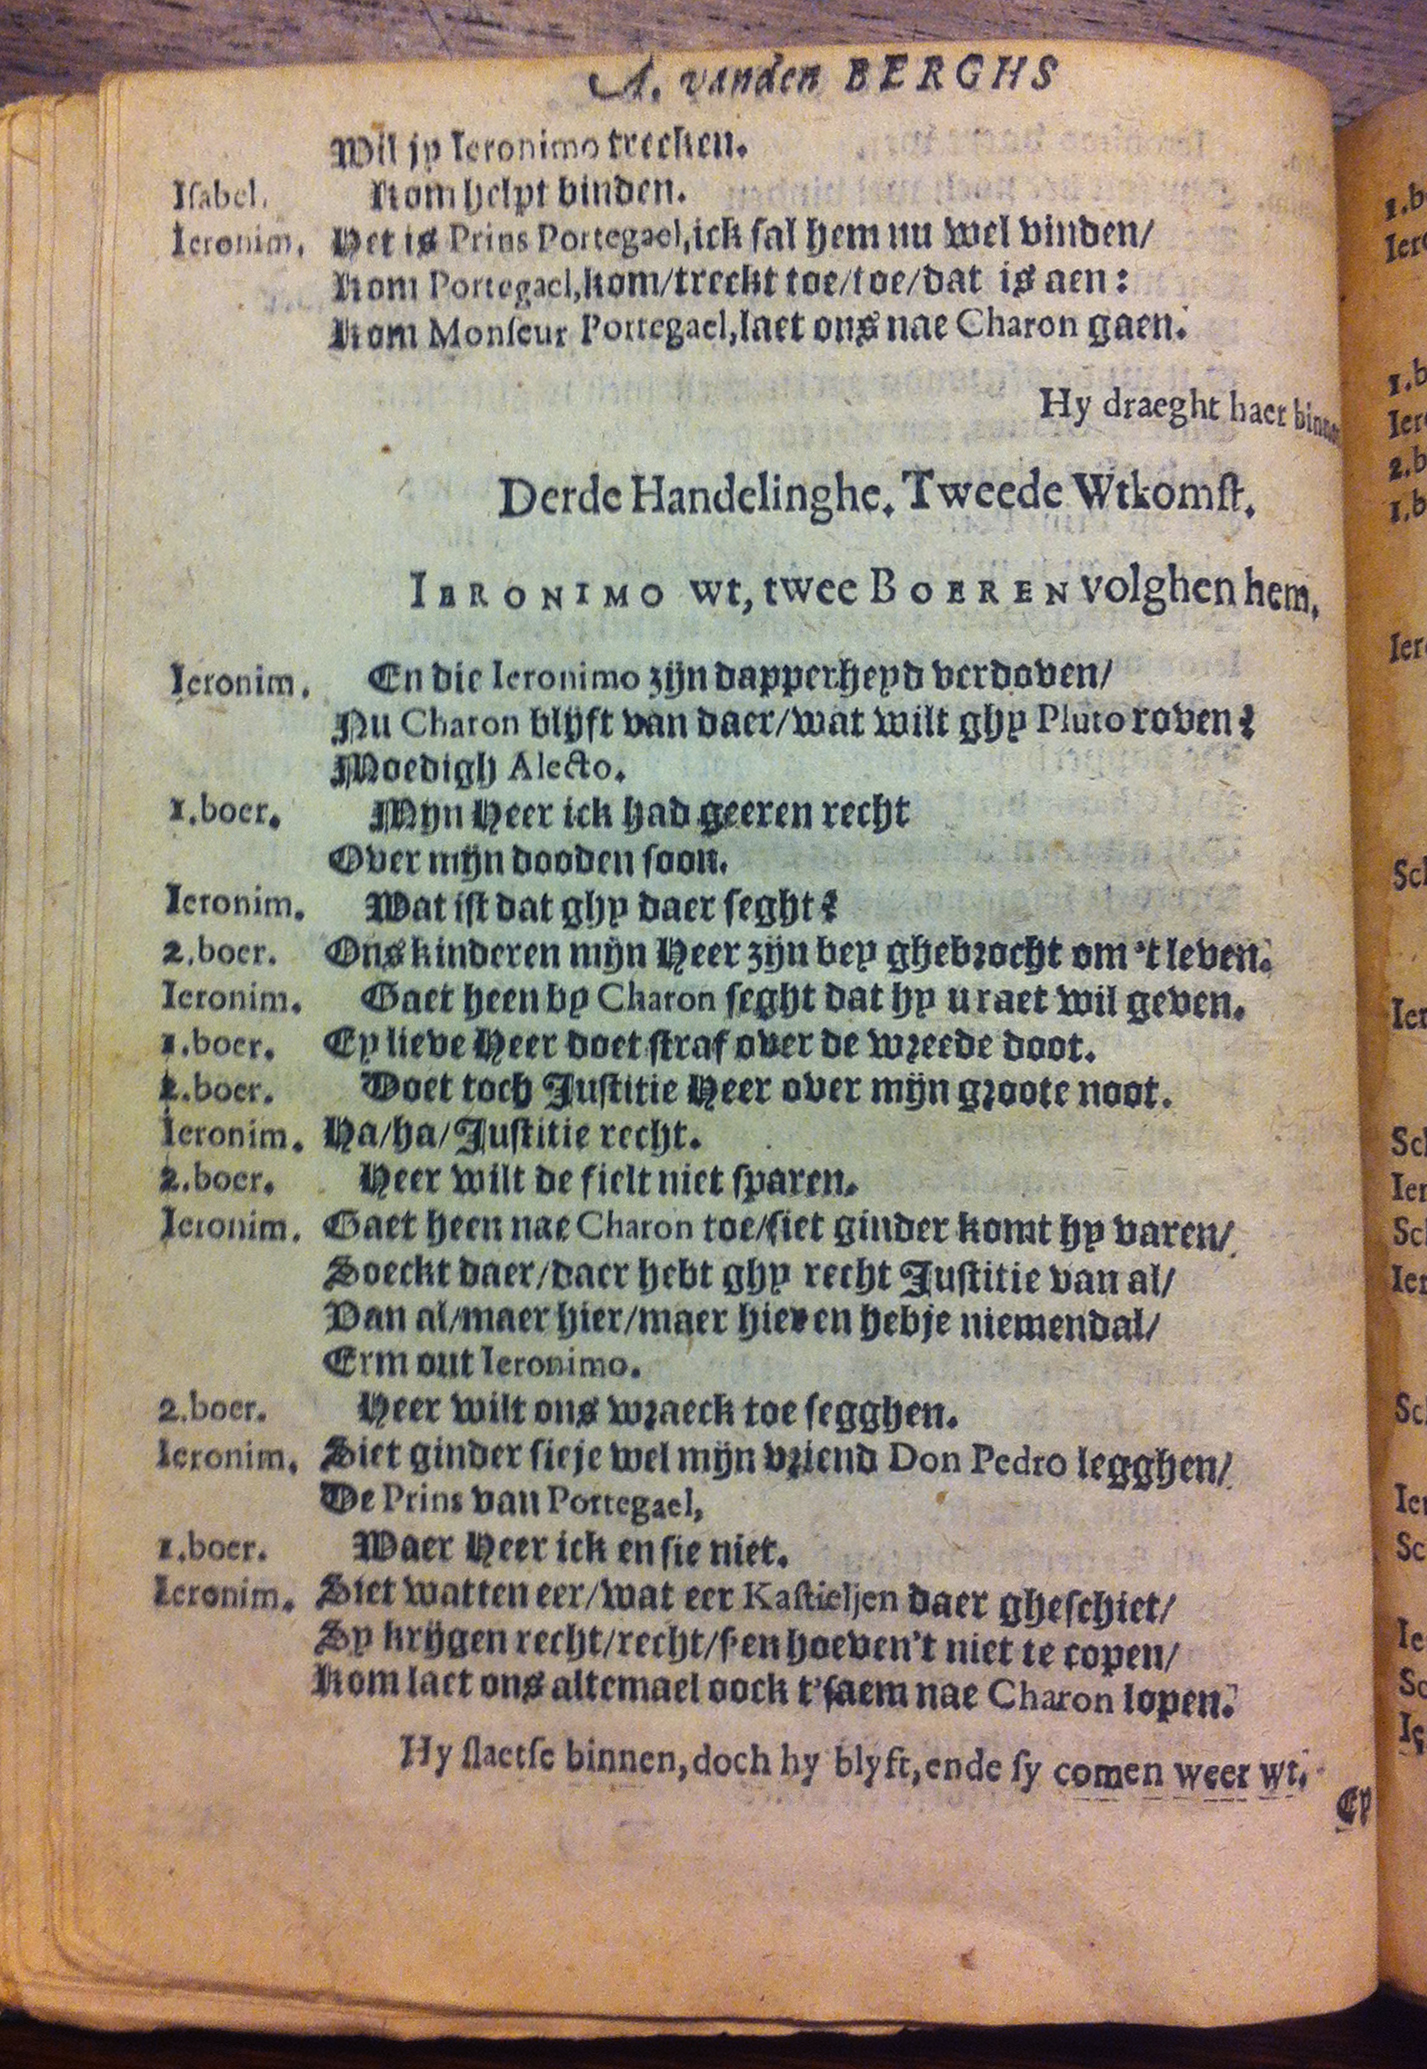 A. vanden BERGHS
Wil jy Ieronimo trecken.
Isabel. Kom helpt binden.
Ieronim. Het is Prins Portegael, ick sal hem nu wel vinden/
Kom Portegael, kom/treckt toe/toe/dat is aen:
Kom Monseur Portegael, laet ons nae Charon gaen.
Hy draeght haer binnen
Derde Handelinghe. Tweede Wtkomst.
IERONIMO wt, twee BOEREN volghen hem.
Ieronim. En die Ieronimo zijn dapperheyd verdoven/
Nu Charon blijft van daer/wat wilt ghy Pluto roven?
Moedigh Alecto.
1.boer. Mijn Heer ick had geeren recht
Over mijn dooden soon.
Ieronim. Wat ist dat ghy daer seght?
2.boer. Ons kinderen mijn Heer zijn bey ghebrocht om 't leven.
Ieronim. Gaet heen by Charon seght dat hy u raet wil geven.
1.boer. Ey lieve Heer doet straf over de wreede doot.
2.boer. Doet toch Justitie Heer over mijn groote noot.
Ieronim. Ha/ha/Justitie recht.
2.boer. Heer wilt de fielt niet sparen.
Ieronim. Gaet heen nae Charon toe/siet ginder komt hy varen/
Soeckt daer/daer hebt ghy recht Justitie van al/
Van al/maer hier/maer hier en hebje niemendal/
Erm out Ieronimo.
2.boer. Heer wilt ons wraeck toe segghen.
Ieronim. Siet ginder sieje wel mijn vriend Don Pedro legghen/
De Prins van Portegael,
1.boer. Waer Heer ick en sie niet.
Ieronim. Siet watten eer/wat eer Kastieljen daer gheschiet/
Sy krijgen recht/recht/s'en hoeven't niet te copen/
Kom laet ons altemael oock t'saem nae Charon lopen.
Hy slaetse binnen, doch hy blyft, ende sy comen weer wt.
Ey
1.b
Ier
1.b
Ier
2.b
1.b
Ier
Sch
Ier
Sch
Ier
Sc
Ier
Sc
Ier
Sc
Ie
Sc
Ie